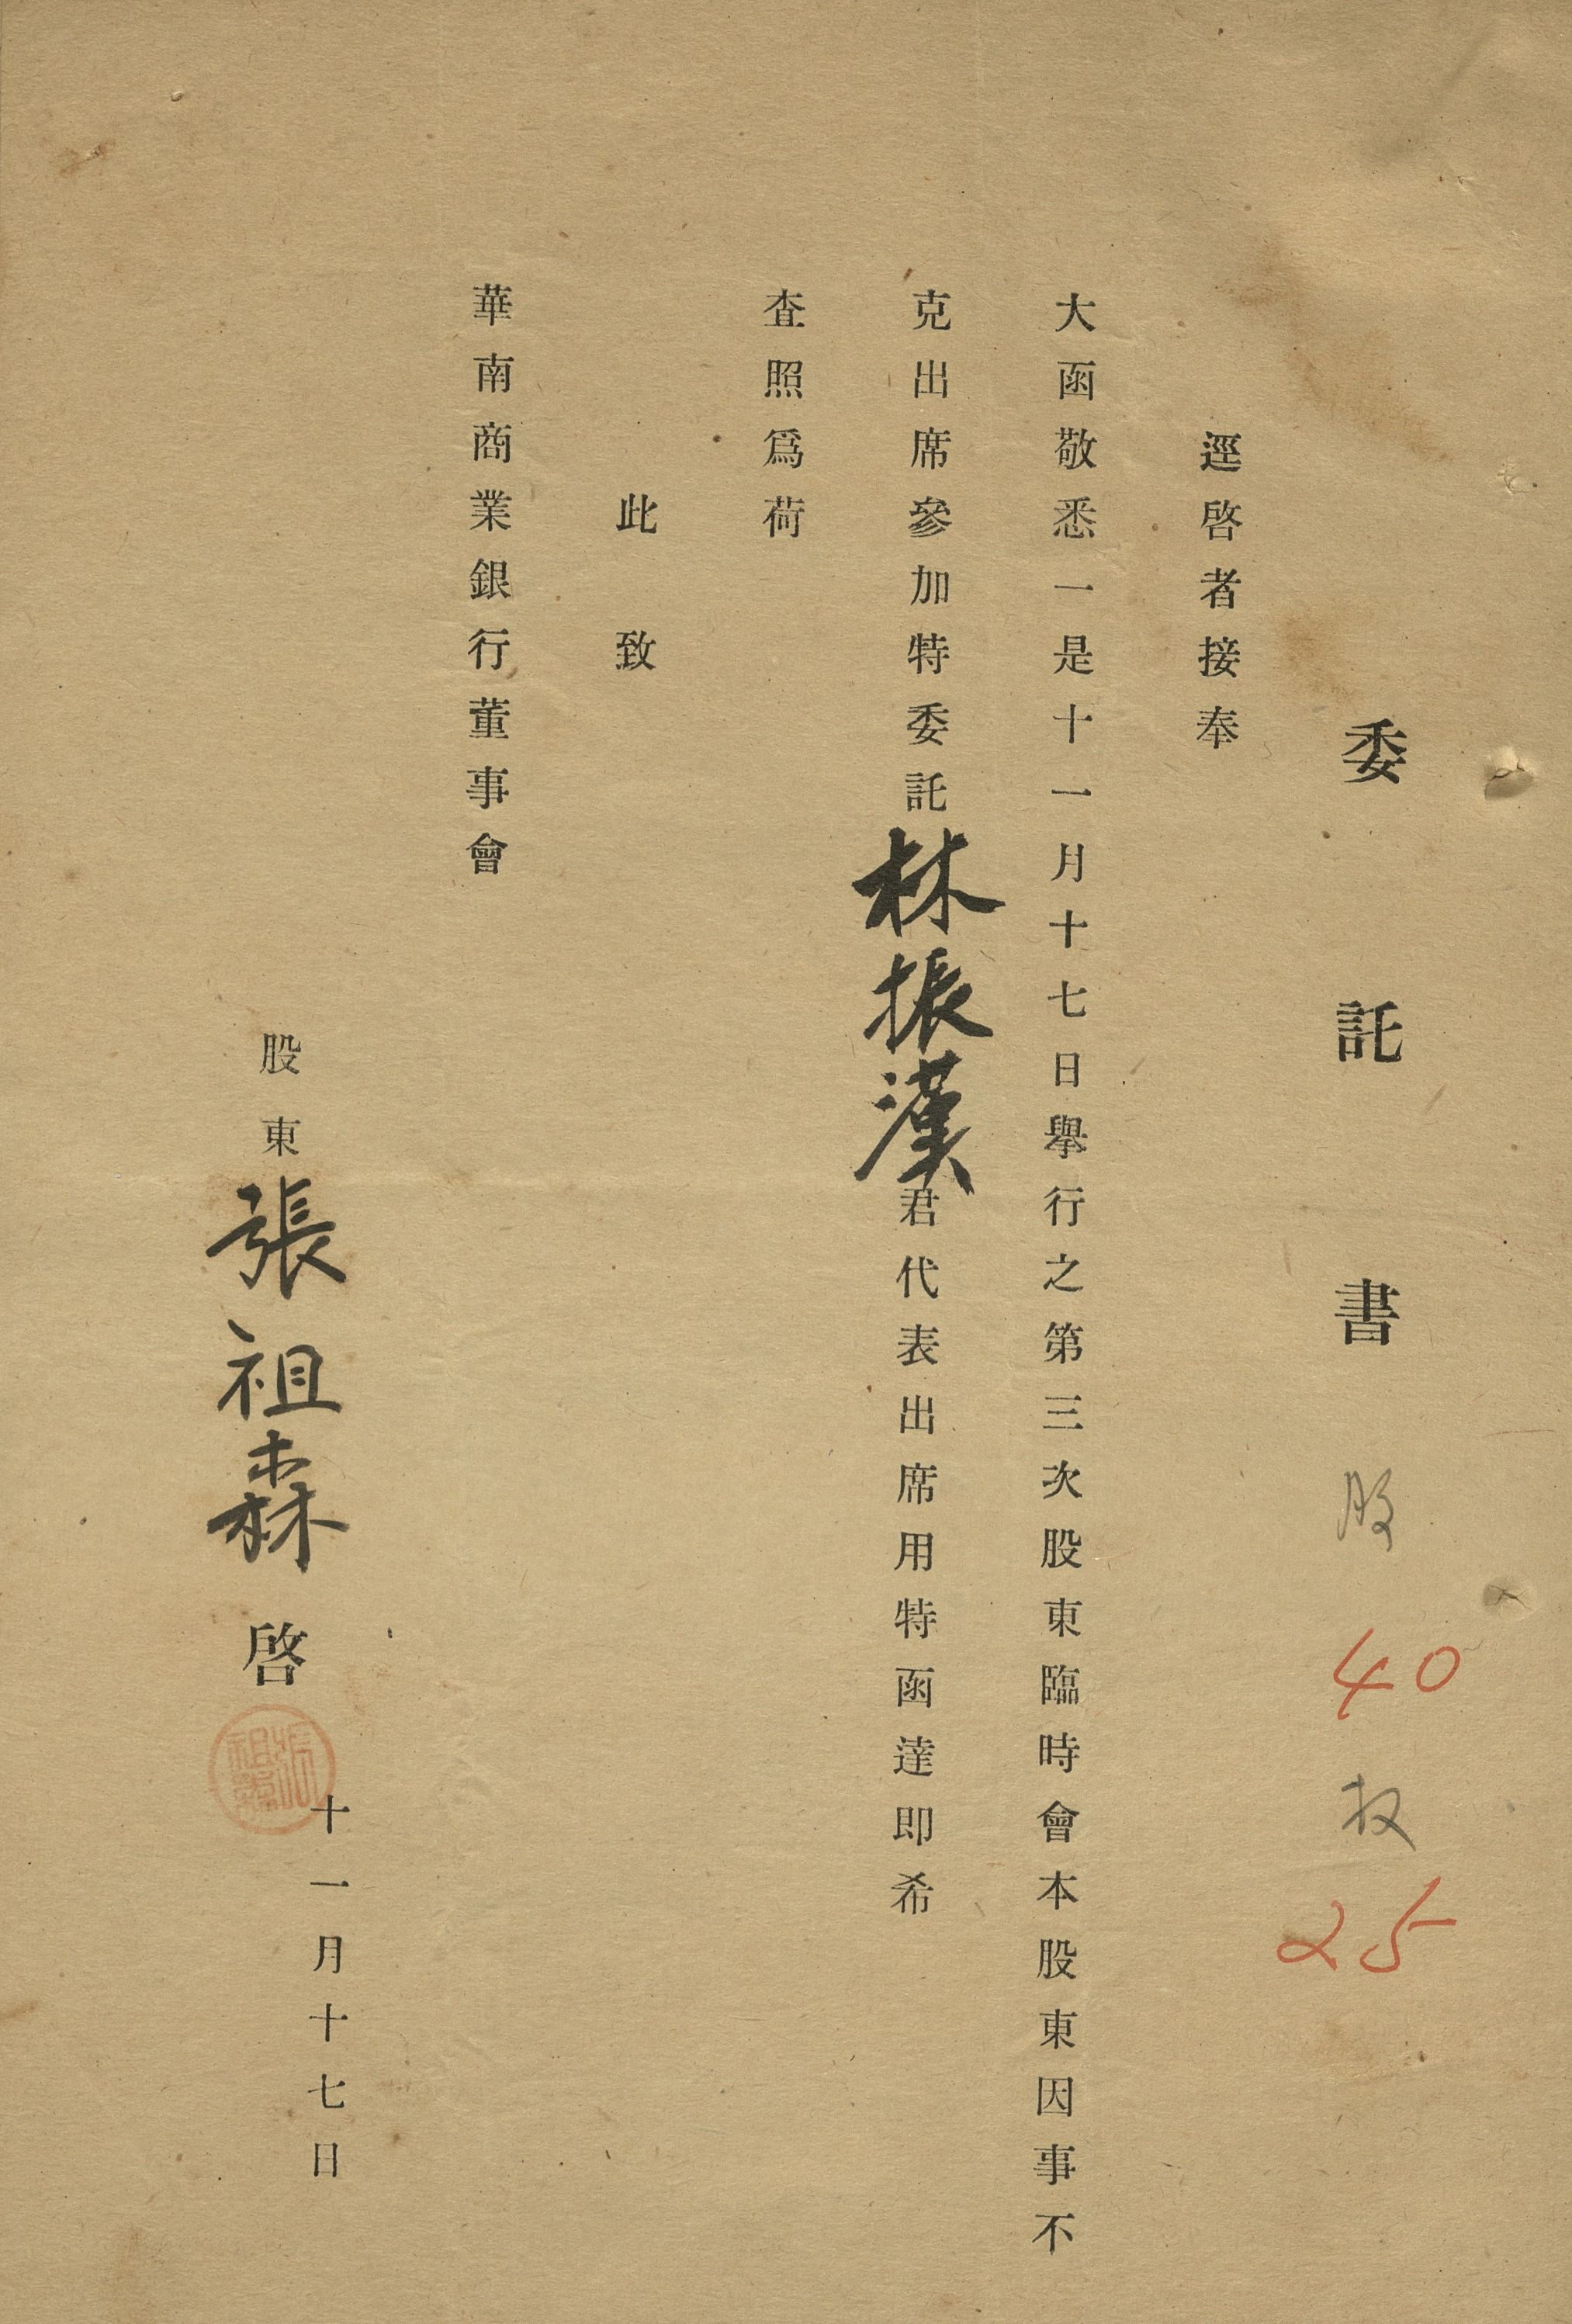 委託書 股 40 权 25
逕啓者接奉
大函敬悉一是十一月十七日舉行之第三次股東臨時會本股東因事不
克出席參加特委託林振漢君代表出席用特函達即希
查照爲荷
此致
華南商業銀行董事會
股東張祖森啓
十一月十七日